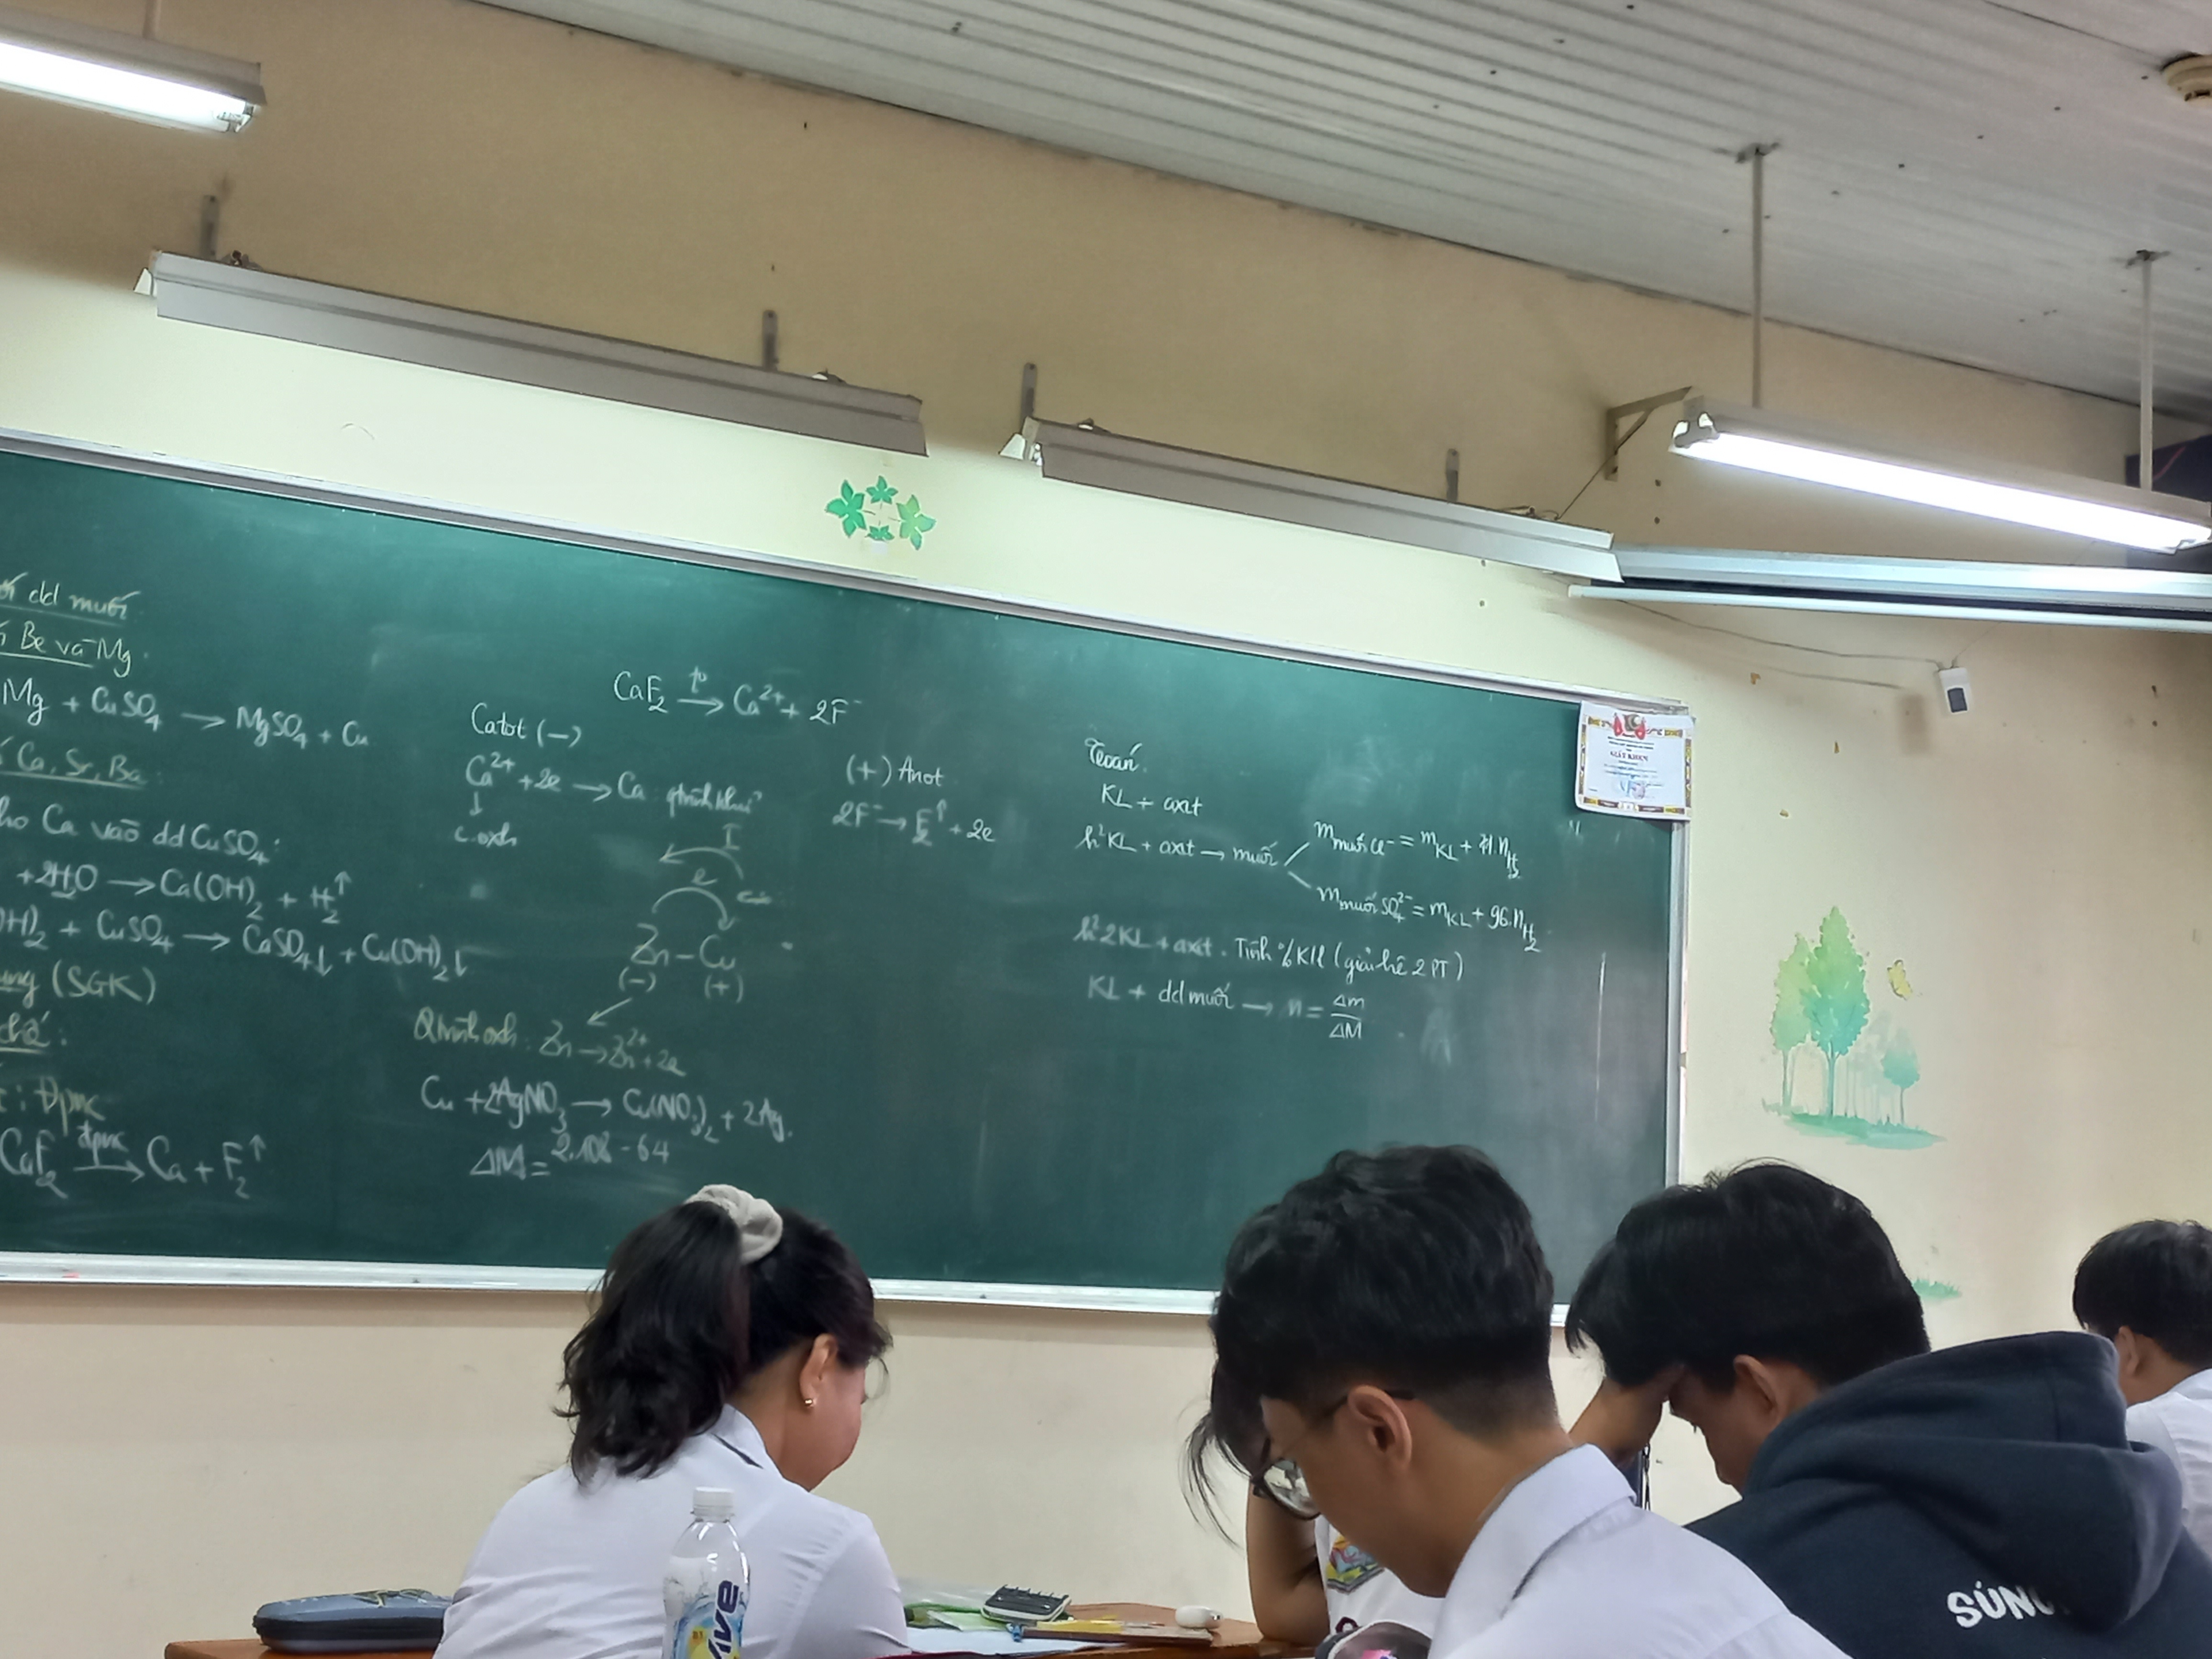 dd muối
Be và Mg.
Mg + CuSO₄ → MgSO₄ + Cu
Ca, Sr, Ba:
Ca vào dd CuSO₄:
+2H₂O → Ca(OH)₂ + H₂↑
+ CuSO₄ → CaSO₄↓ + Cu(OH)₂↓
(SGK)
chế:
: Đpnc
CaF₂ →đpnc Ca + F₂↑
CaF₂ →t° Ca²⁺ + 2F⁻
Catot (-)
Ca²⁺ + 2e → Ca: qtrình khử
↓
c.oxh
(+) Anot
2F⁻ → F₂↑ + 2e
I
e
Zn - Cu
(-) (+)
Qtrình oxh: Zn → Zn²⁺ + 2e
Cu + 2AgNO₃ → Cu(NO₃)₂ + 2Ag.
ΔM = 2.108 - 64
Toán.
KL + axit
h² KL + axit → muối
m muối Cl⁻ = m KL + 71.n H₂
m muối SO₄²⁻ = m KL + 96.n H₂
h² 2KL + axit. Tính %KL (giải hệ 2 PT)
KL + dd muối → n = Δm/ΔM
GIẤY KHEN
Vive
SÚN